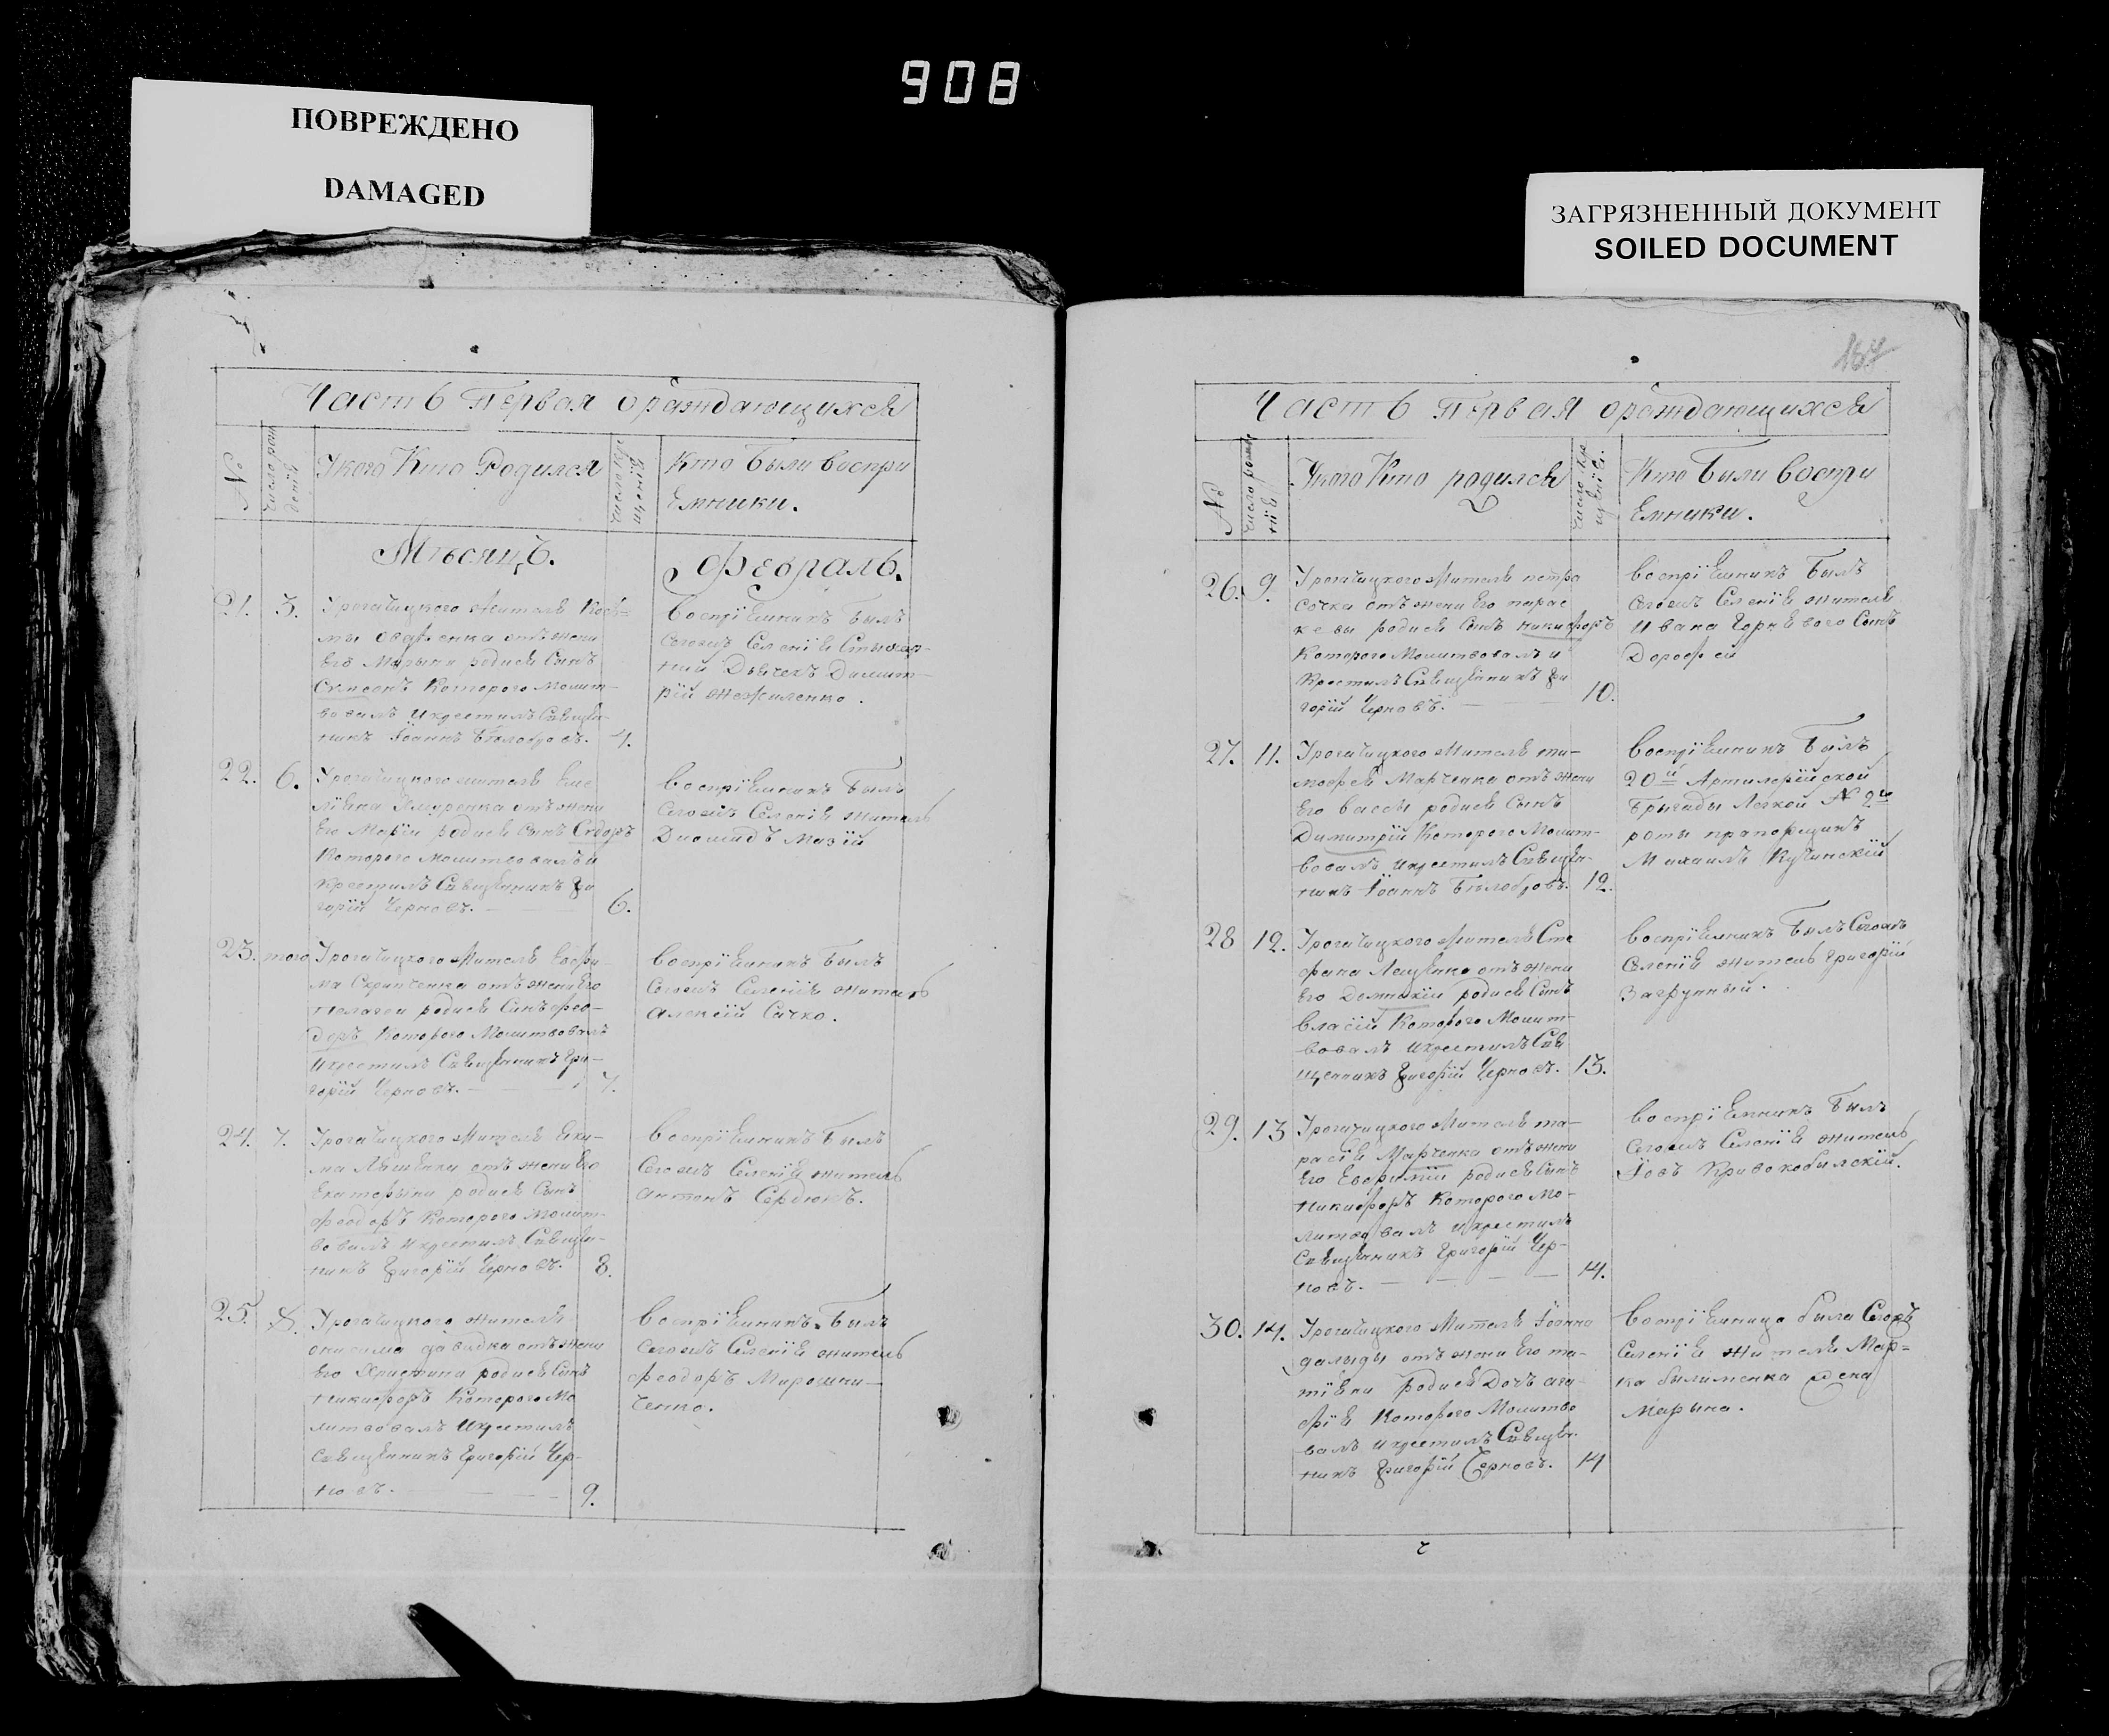 908
ПОВРЕЖДЕНО
DAMAGED
ЗАГРЯЗНЕННЫЙ ДОКУМЕНТ
SOILED DOCUMENT
Часть Первая ораждающихся
№
Укого Кто Родился
Кто были воспри
Емники.
Месяцъ.
Февраль.
21. 3.
Урогачицкого жителя Кось-
мы отъ жени
Его Марыны родися Сынъ
которого молит-
вовалъ икрестилъ Свяще-
никъ Іоаннъ Белобровъ. 4.
Воспріемникъ былъ
Сегожъ Селенія
Димит-
рій
22. 6.
Урогачицкого жителя
отъ жени
Его Маріи родися сынъ Сидоръ
Которого молитвовалъ и
крестилъ Священикъ Гри
горій Черновъ. 6.
воспріемникъ былъ
Сегожъ Селенія житель
Диомидъ Мазій
23. того
Урогачицкого жителя Евфи-
ма Скрипченка отъ жени Его
Пелагеи родися Синъ фео-
доръ Которого Молитвовалъ
икрестилъ Священикъ Гри-
горій Черновъ. 7.
воспріемникъ былъ
Сегожъ Селенія житель
Алексій Сачко.
24. 7.
Урогачицкого жителя Еки-
ма отъ жени Его
Екатерыны родися Сынъ
феодоръ Которого молит-
вовалъ икрестилъ Свяще-
никъ Григорій Черновъ. 8.
воспріемникъ былъ
Сегожъ Селенія житель
антонъ Сердюкъ.
25. 8.
Урогачицкого жителя
онисима отъ жени
Его Христины родися Сынъ
Никифоръ Которого Мо
литвовалъ Икрестилъ
Священикъ Григорій Чер-
новъ. 9.
воспріемникъ былъ
Сегожъ Селенія житель
феодоръ Мирошни-
ченко.
167
Часть первая ораждающихся
№
Укого Кто родился
Кто были воспри
Емники.
26. 9.
Урогачицкого жителя петра
сочка отъ жени Его парас
кевы родися Сынъ никифоръ
Которого Молитвовалъ и
Крестилъ Священикъ Гри
горій Черновъ. 10.
воспріемникъ былъ
Сегожъ Селенія жителя
Ивана Сынъ
Дорофей
27. 11.
Урогачицкого жителя ти-
мофея Марченка отъ жени
Его вассы родися Сынъ
Димитрій Которого Молит-
вовалъ икрестилъ Свяще-
никъ Іоаннъ Белобровъ. 12.
воспріемникъ былъ
20й Артилерійской
Бригады Легкой № 2й
роты прапорщикъ
Михаилъ Кучинскій
28 12.
Урогачицкого жителя Сте
фана Лещенка отъ жени
Его Домникіи родися Сынъ
власій Которого Молит-
вовалъ икрестилъ Свя
щенникъ Григорій Черновъ. 13.
воспріемникъ былъ Сегожъ
Селенія житель Григорій
Загрунный.
29. 13
Урогачицкого жителя та-
расія Марченка отъ жени
Его Евфиміи родися Сынъ
Никифоръ Которого Мо-
литвовалъ икрестилъ
Священикъ Григорій Чер-
новъ. 14.
воспріемникъ былъ
Сегожъ Селенія житель
Іовъ Кривокобилскій.
30. 14.
Урогачицкого жителя Іоанна
галыды отъ жени Его та-
тіяни родися Дочь ага-
фія Которого Молитво
валъ икрестилъ Священ-
никъ Григорій Черновъ. 14
воспріемница была Сегожъ
Селенія жителя Мар-
ка жена
Марына.